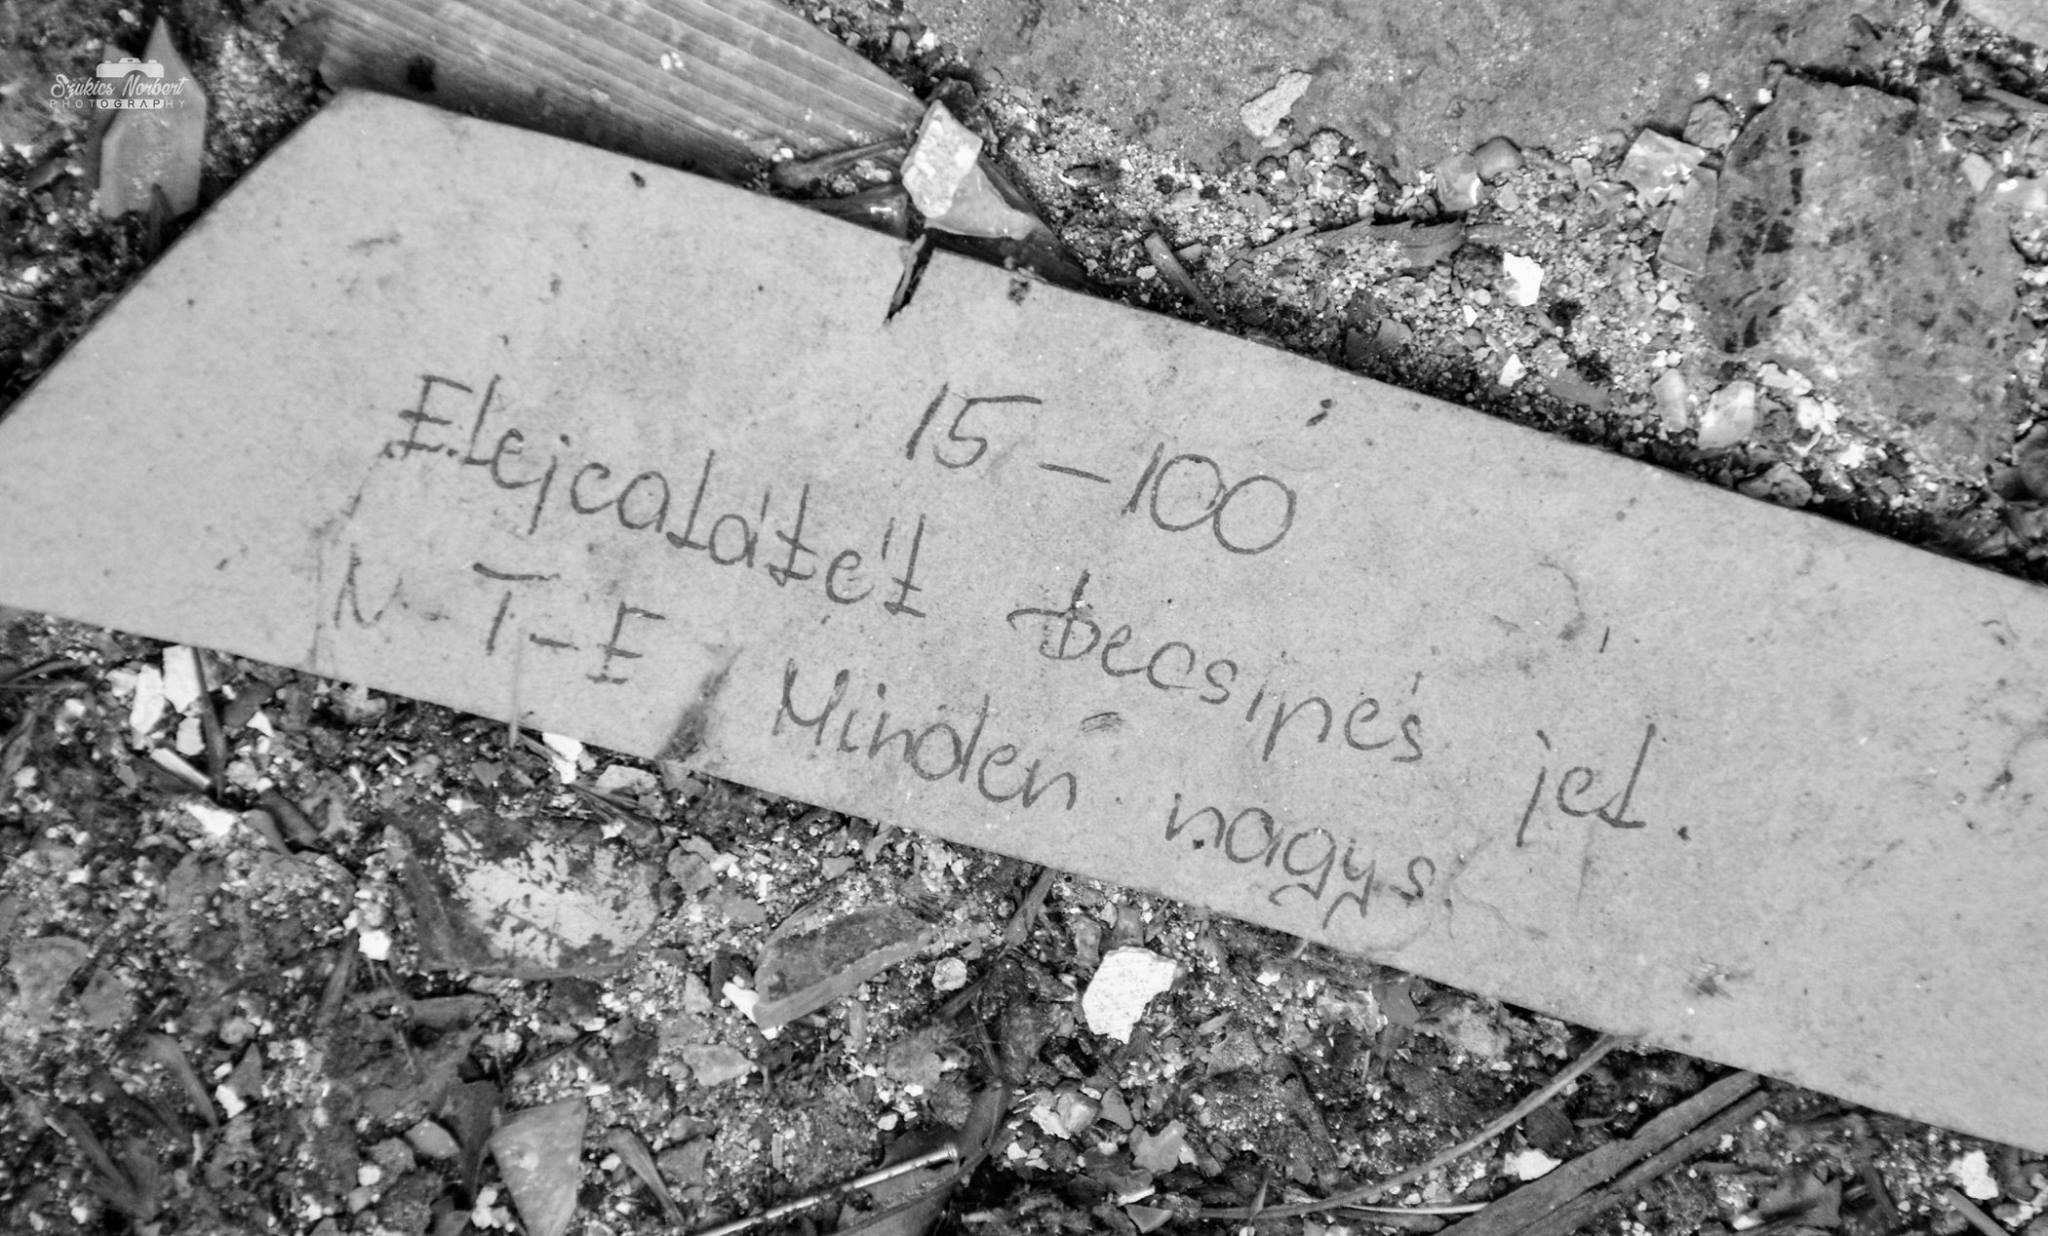 Szukics Norbert
PHOTOGRAPHY
15 – 100
Elejcalátét becsípés jel.
N-T-E Minden nagys.